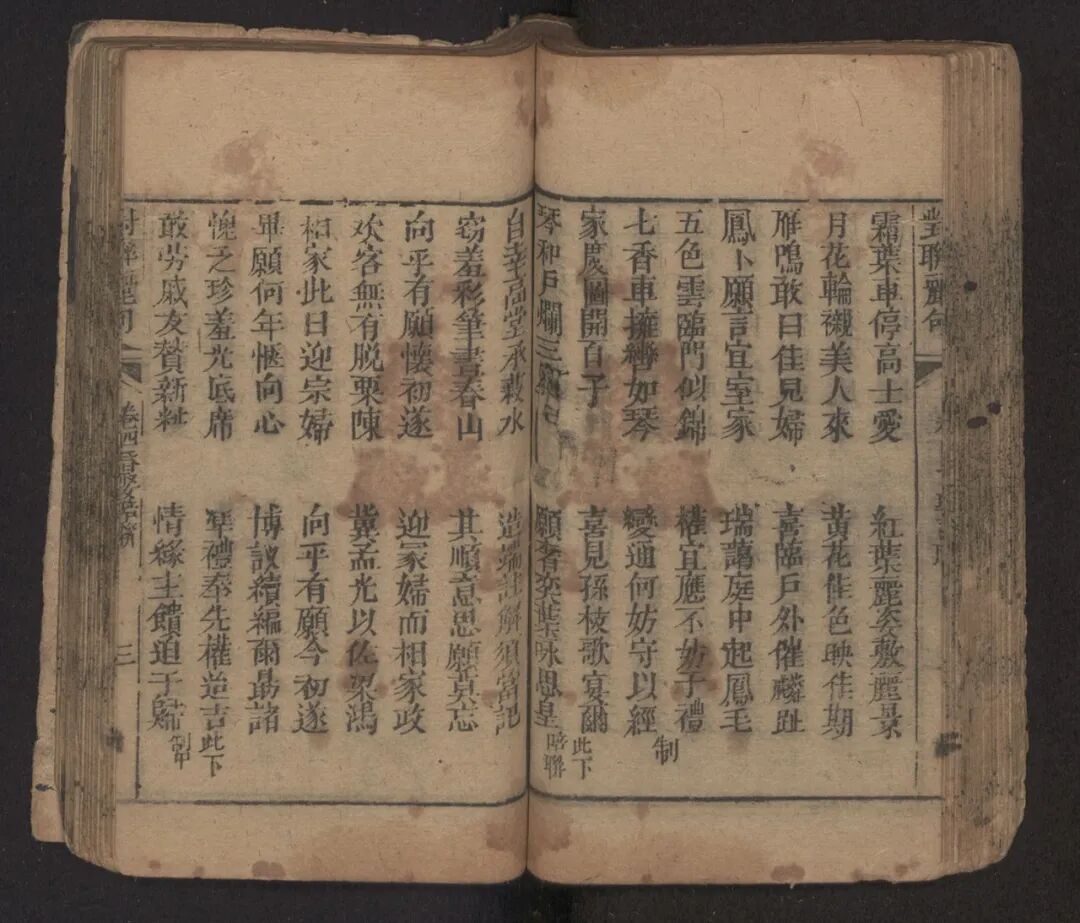 對聯麗句
霜葉車停高士愛 紅葉麗姿敷麗景
月花輪襯美人來 黃花佳色映佳期
雁鳴敢曰佳見婦 喜臨戶外催麟趾
鳳卜願言宜室家 瑞藹庭中起鳳毛
五色雲臨門似錦 權宜應不妨于禮
七香車擁轡如琴 變通何妨守以經 制
家慶圖開百子 喜見孫枝歌宴爾 此下
琴和戶爛三 願奕葉咏思皇 聯
自幸高堂承菽水 造端註解須當記
窃羞彩筆畫春山 其順意思願莫忘
向平有願懷初遂 迎家婦而相家政
欢客無有脫粟陳 冀孟光以佐梁鴻
相家此日迎宗婦 向平有願今初遂
畢願何年愜向心 博議續編爾勗諸
愧乏珍羞光底席  礼奉先權造吉 此下
敢勞戚友賛新粧 情緣主饋迫于歸 制中
卷四 三